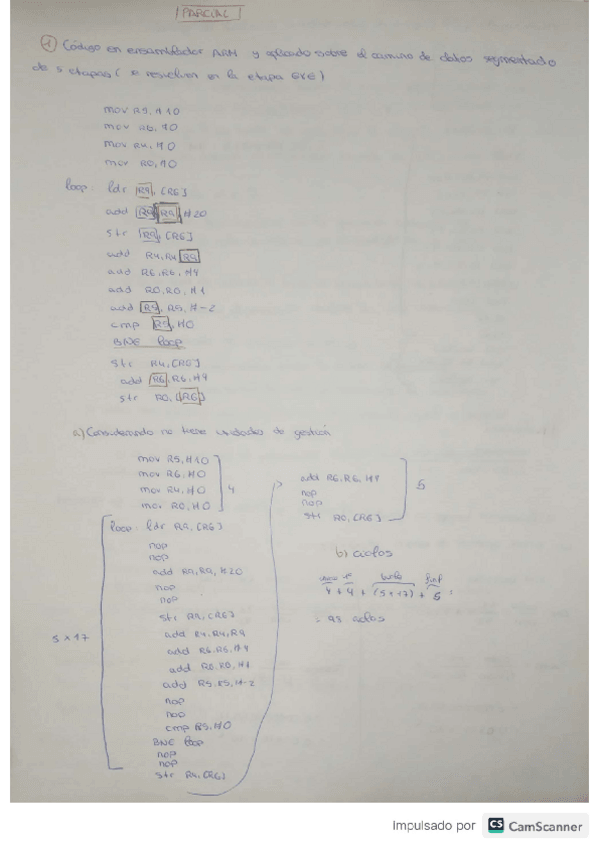 PARCIAL
1 Código en ensamblador ARM y aplicado sobre el camino de datos segmentado
de 5 etapas ( se resuelven en la etapa EXE)
mov R5, #10
mov R6, #0
mov R4, #0
mov R0, #0
loop: ldr R9, [R6]
add R9, R9, #20
str R9, [R6]
add R4, R4, R9
add R6, R6, #4
add R0, R0, #1
add R5, R5, #-2
cmp R5, #0
BNE loop
str R4, [R6]
add R6, R6, #4
str R0, [R6]
a) Considerando no tiene unidades de gestión
mov R5, #10
mov R6, #0
mov R4, #0
mov R0, #0
4
loop: ldr R9, [R6]
nop
nop
add R9, R9, #20
nop
nop
str R9, [R6]
add R4, R4, R9
add R6, R6, #4
add R0, R0, #1
add R5, R5, #-2
nop
nop
cmp R5, #0
BNE loop
nop
nop
str R4, [R6]
5 x 17
add R6, R6, #4
nop
nop
str R0, [R6]
5
b) ciclos
bucle
4 + 4 + (5x17) + 5 =
= 98 ciclos
Impulsado por CS CamScanner